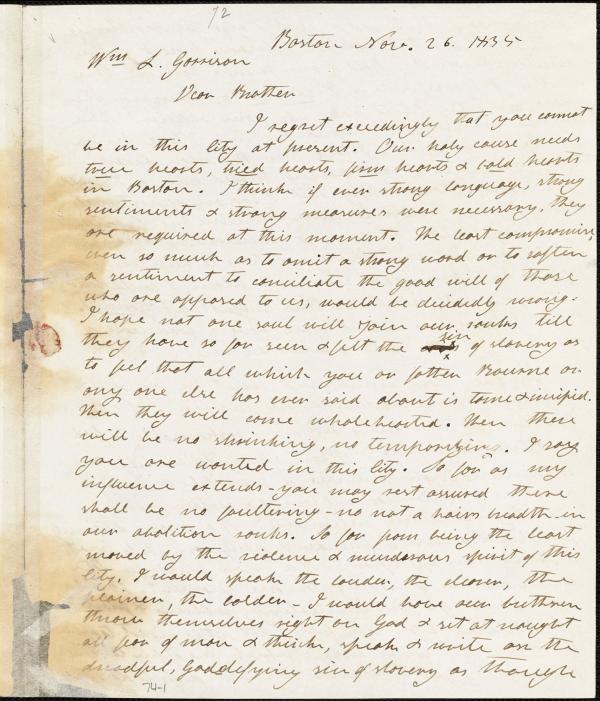 72
Boston Nov. 26. 1835
Wm L. Garrison
Dear Brother
I regret exceedingly that you cannot
be in this city at present. Our holy cause needs
true hearts, tried hearts, firm hearts & bold hearts
in Boston. I think if ever strong language, strong
sentiments & strong measures were necessary, they
are required at this moment. The least compromise,
even so much as to omit a strong word or to soften
a sentiment to conciliate the good will of those
who are opposed to us, would be decidedly wrong.
I hope not one soul will join our ranks till
they have so far seen & felt the sin of slavery as
to feel that all which you or father Bourne or
any one else has ever said about is tame & insipid.
Then they will come whole hearted. Then there
will be no shrinking, no temporizing. I say
you are wanted in this city. So far as my
influence extends - you may rest assured there
shall be no faultering - no not a hairs breadth - in
our abolition ranks. So far from being the least
moved by the violence & murderous spirit of this
city. I would speak the louder, the clearer, the
plainer, the bolder - I would have our brethren
throw themselves right on God & set at nought
all fear of man & think, speak & write on the
dreadful, God defying sin of slavery as though
74-1